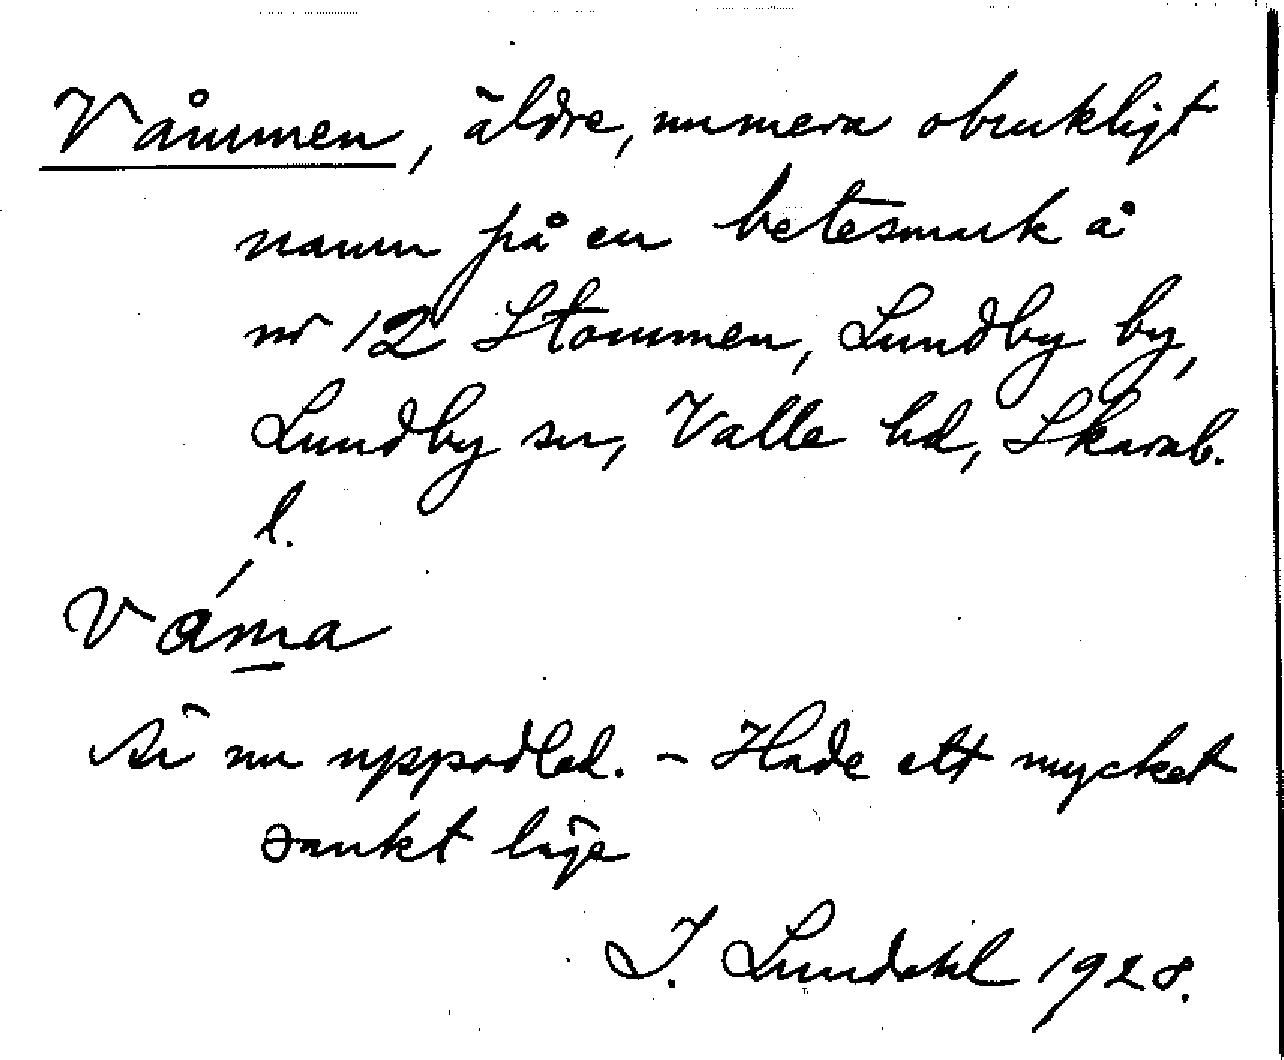 Våmmen, äldre, numera obrukligt
namn på en betesmark å
nr 12 Stommen, Lundby by,
Lundby sn, Valle hd, Skarab.
l.
Våma
Är nu uppodlad. – Hade ett mycket
sankt läge
I. Lundahl 1928.